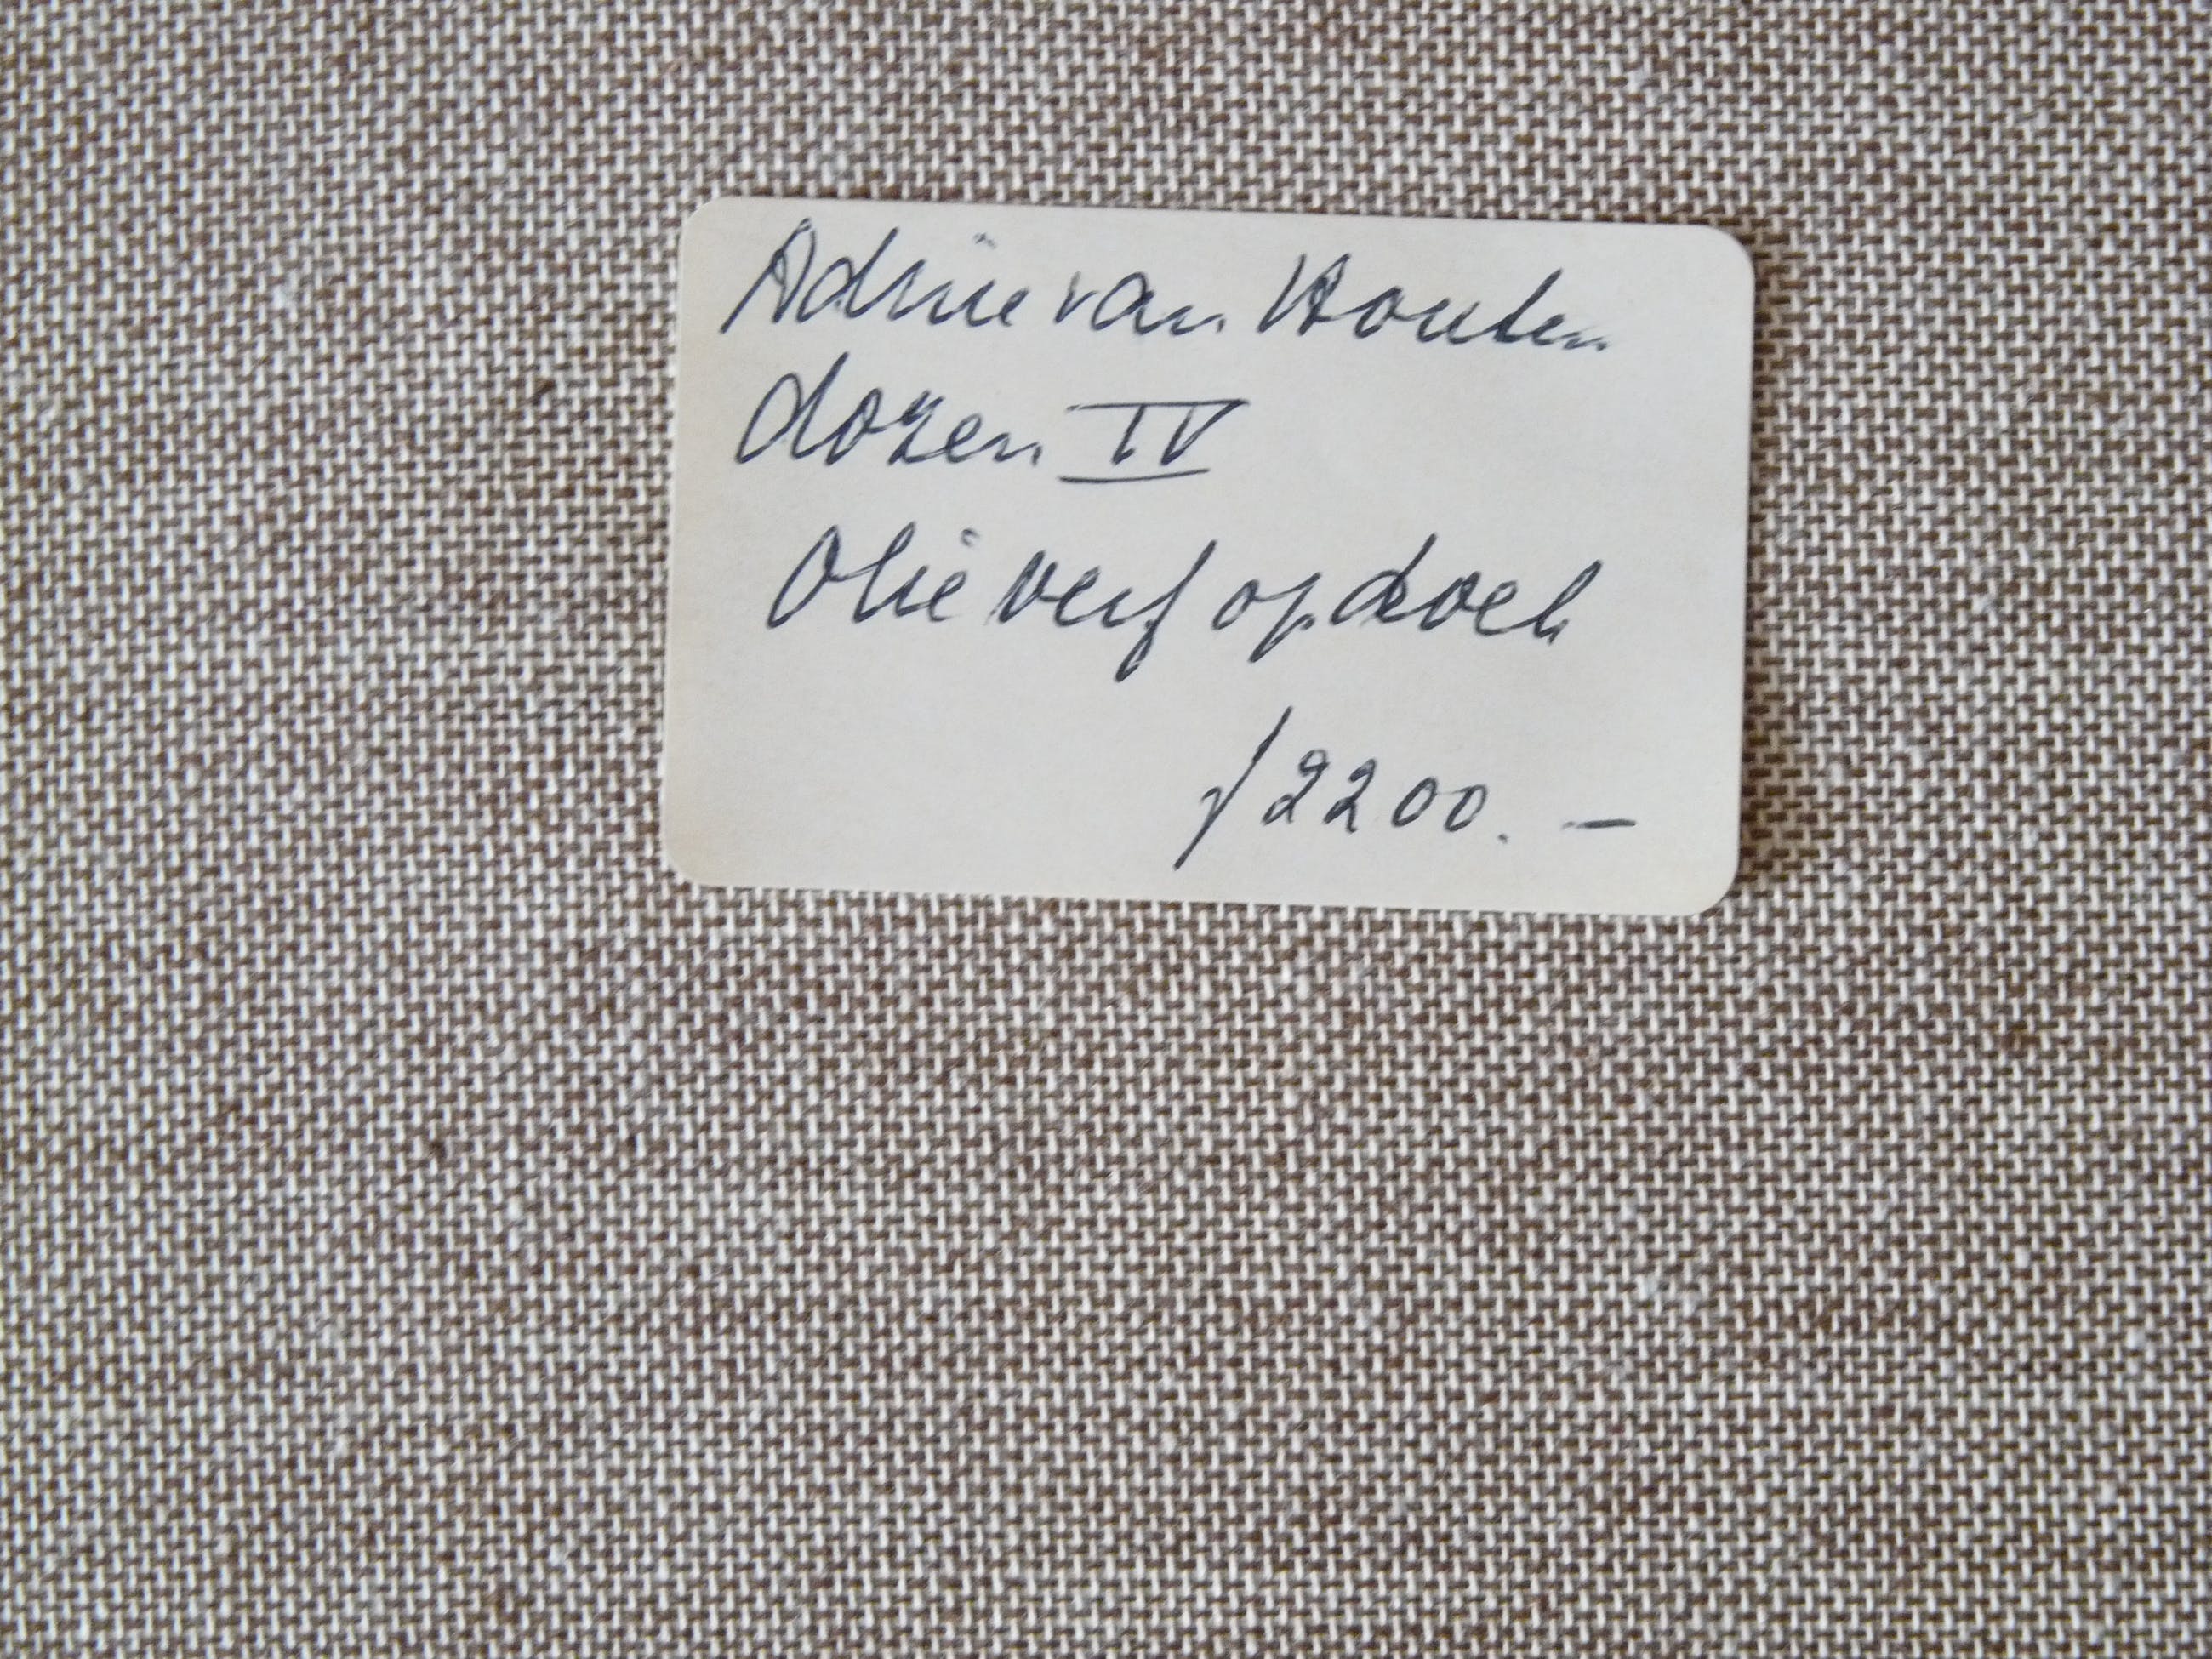 Adrie van Houten
dozen IV
Olieverf op doek
ƒ 2200. —